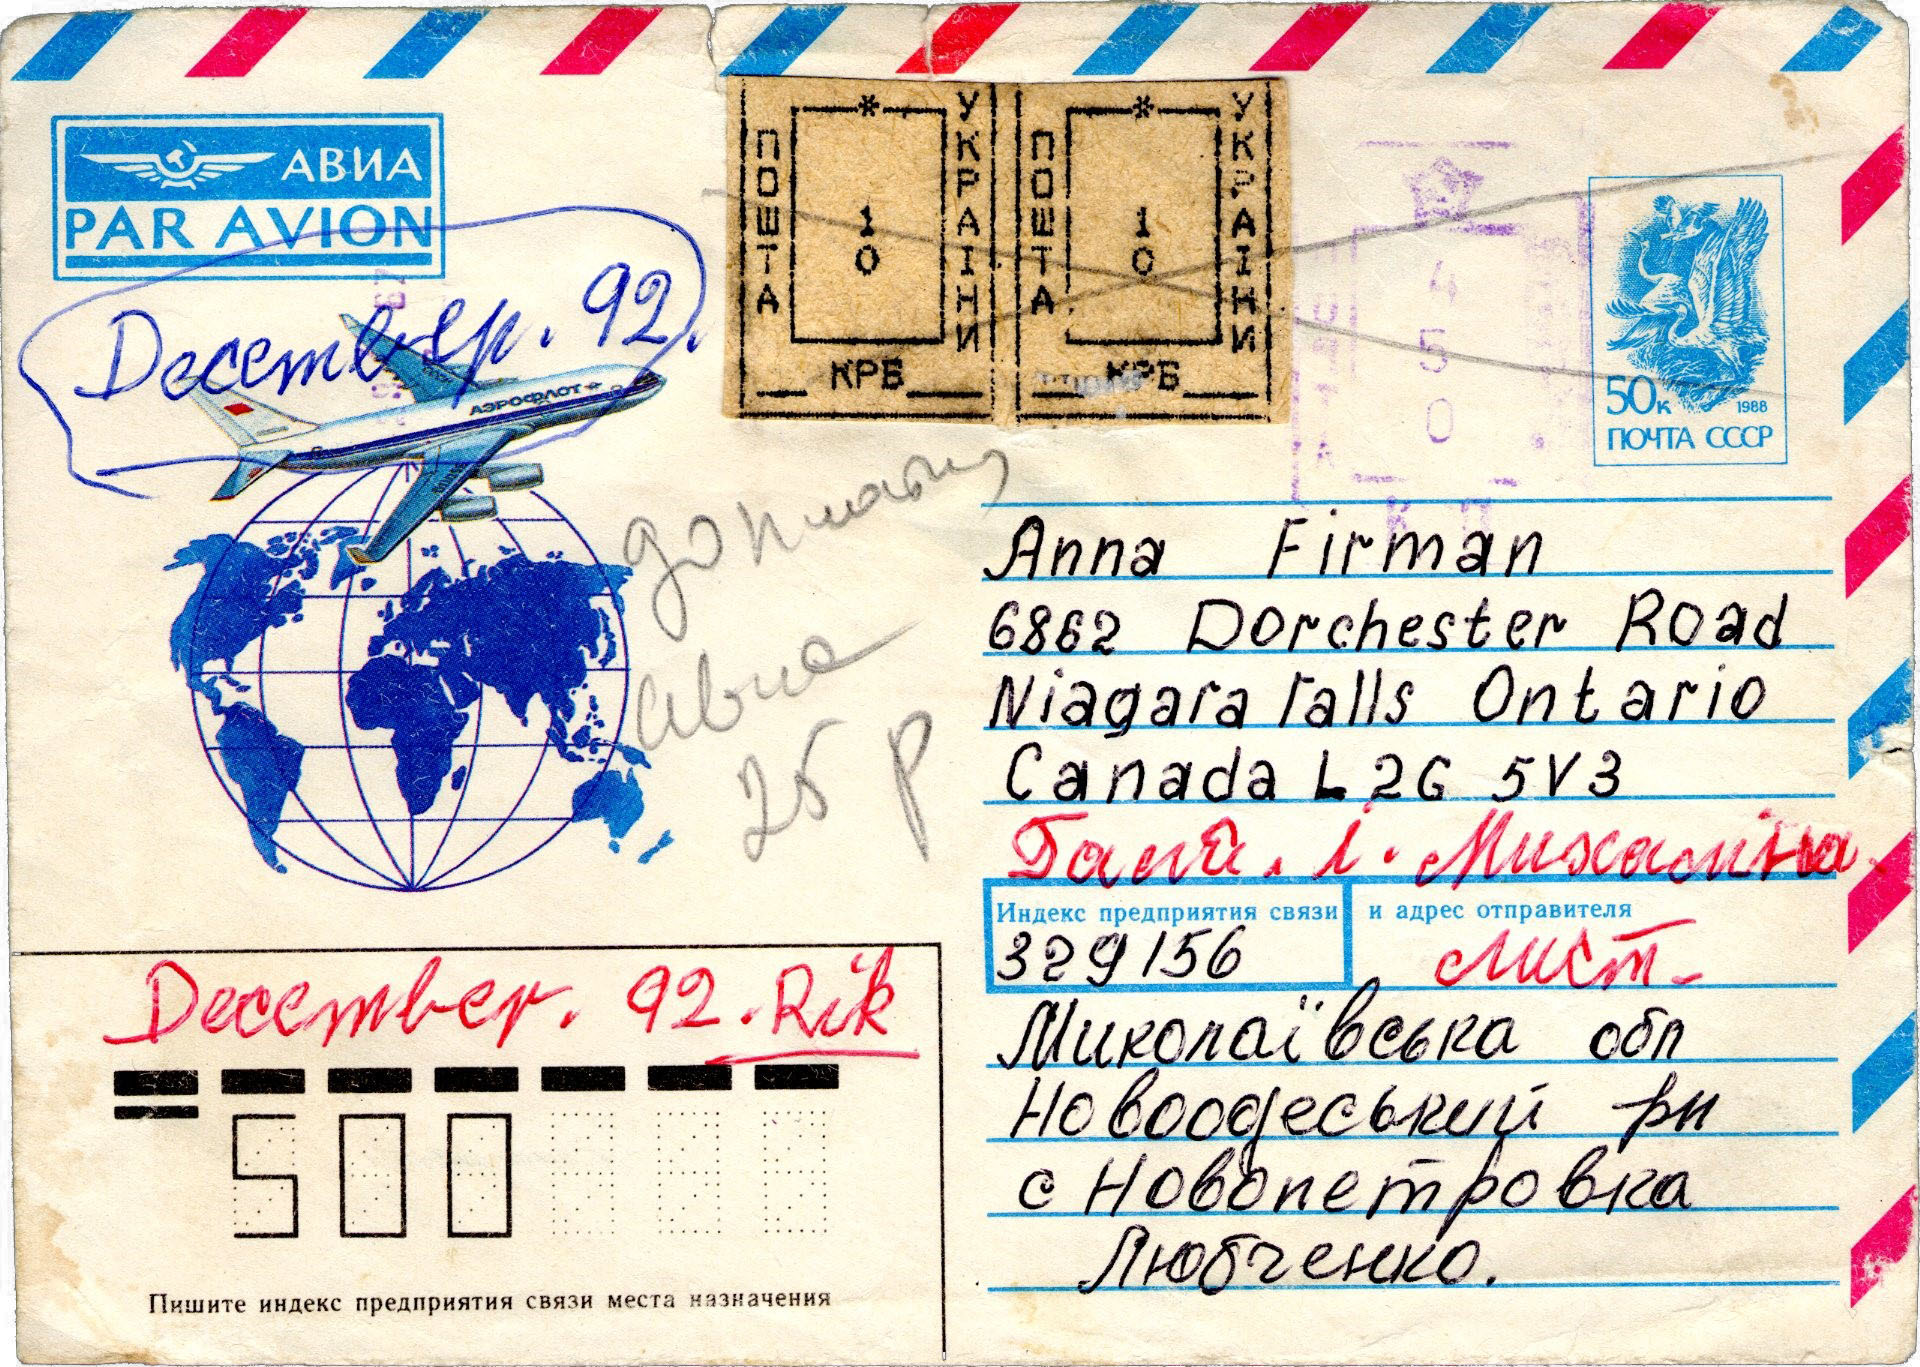 АВИА
PAR AVION
December. 92.
АЭРОФЛОТ
ПОШТА
УКРАЇНИ
*
10
КРБ
ПОШТА
УКРАЇНИ
*
10
КРБ
450
50к
1988
ПОЧТА СССР
доплати
авиа
25 р
Anna Firman
6862 Dorchester Road
Niagara Falls Ontario
Canada L2G 5V3
Ганя. і. Михаліна.
Индекс предприятия связи и адрес отправителя
329156
лист-
Миколаївська обл
Новоодеський рн
с Новопетровка
Любченко.
December. 92. Rik
500
Пишите индекс предприятия связи места назначения